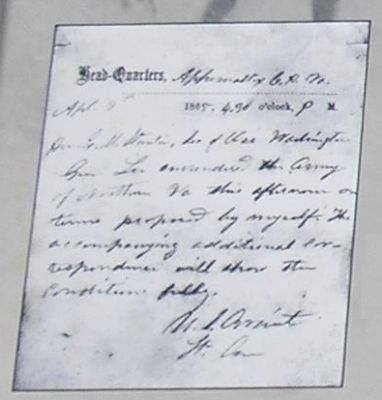 Head-Quarters, Appomattox C. H. Va.
Apl. 9th 1865, 4.30 o'clock, P M.
Hon. E. M. Stanton, Sec of War Washington
Gen Lee surrendered the Army
of Northern Va this afternoon on
terms proposed by myself. The
accompanying additional cor-
respondence will show the
conditions fully.
U. S. Grant
Lt. Gen